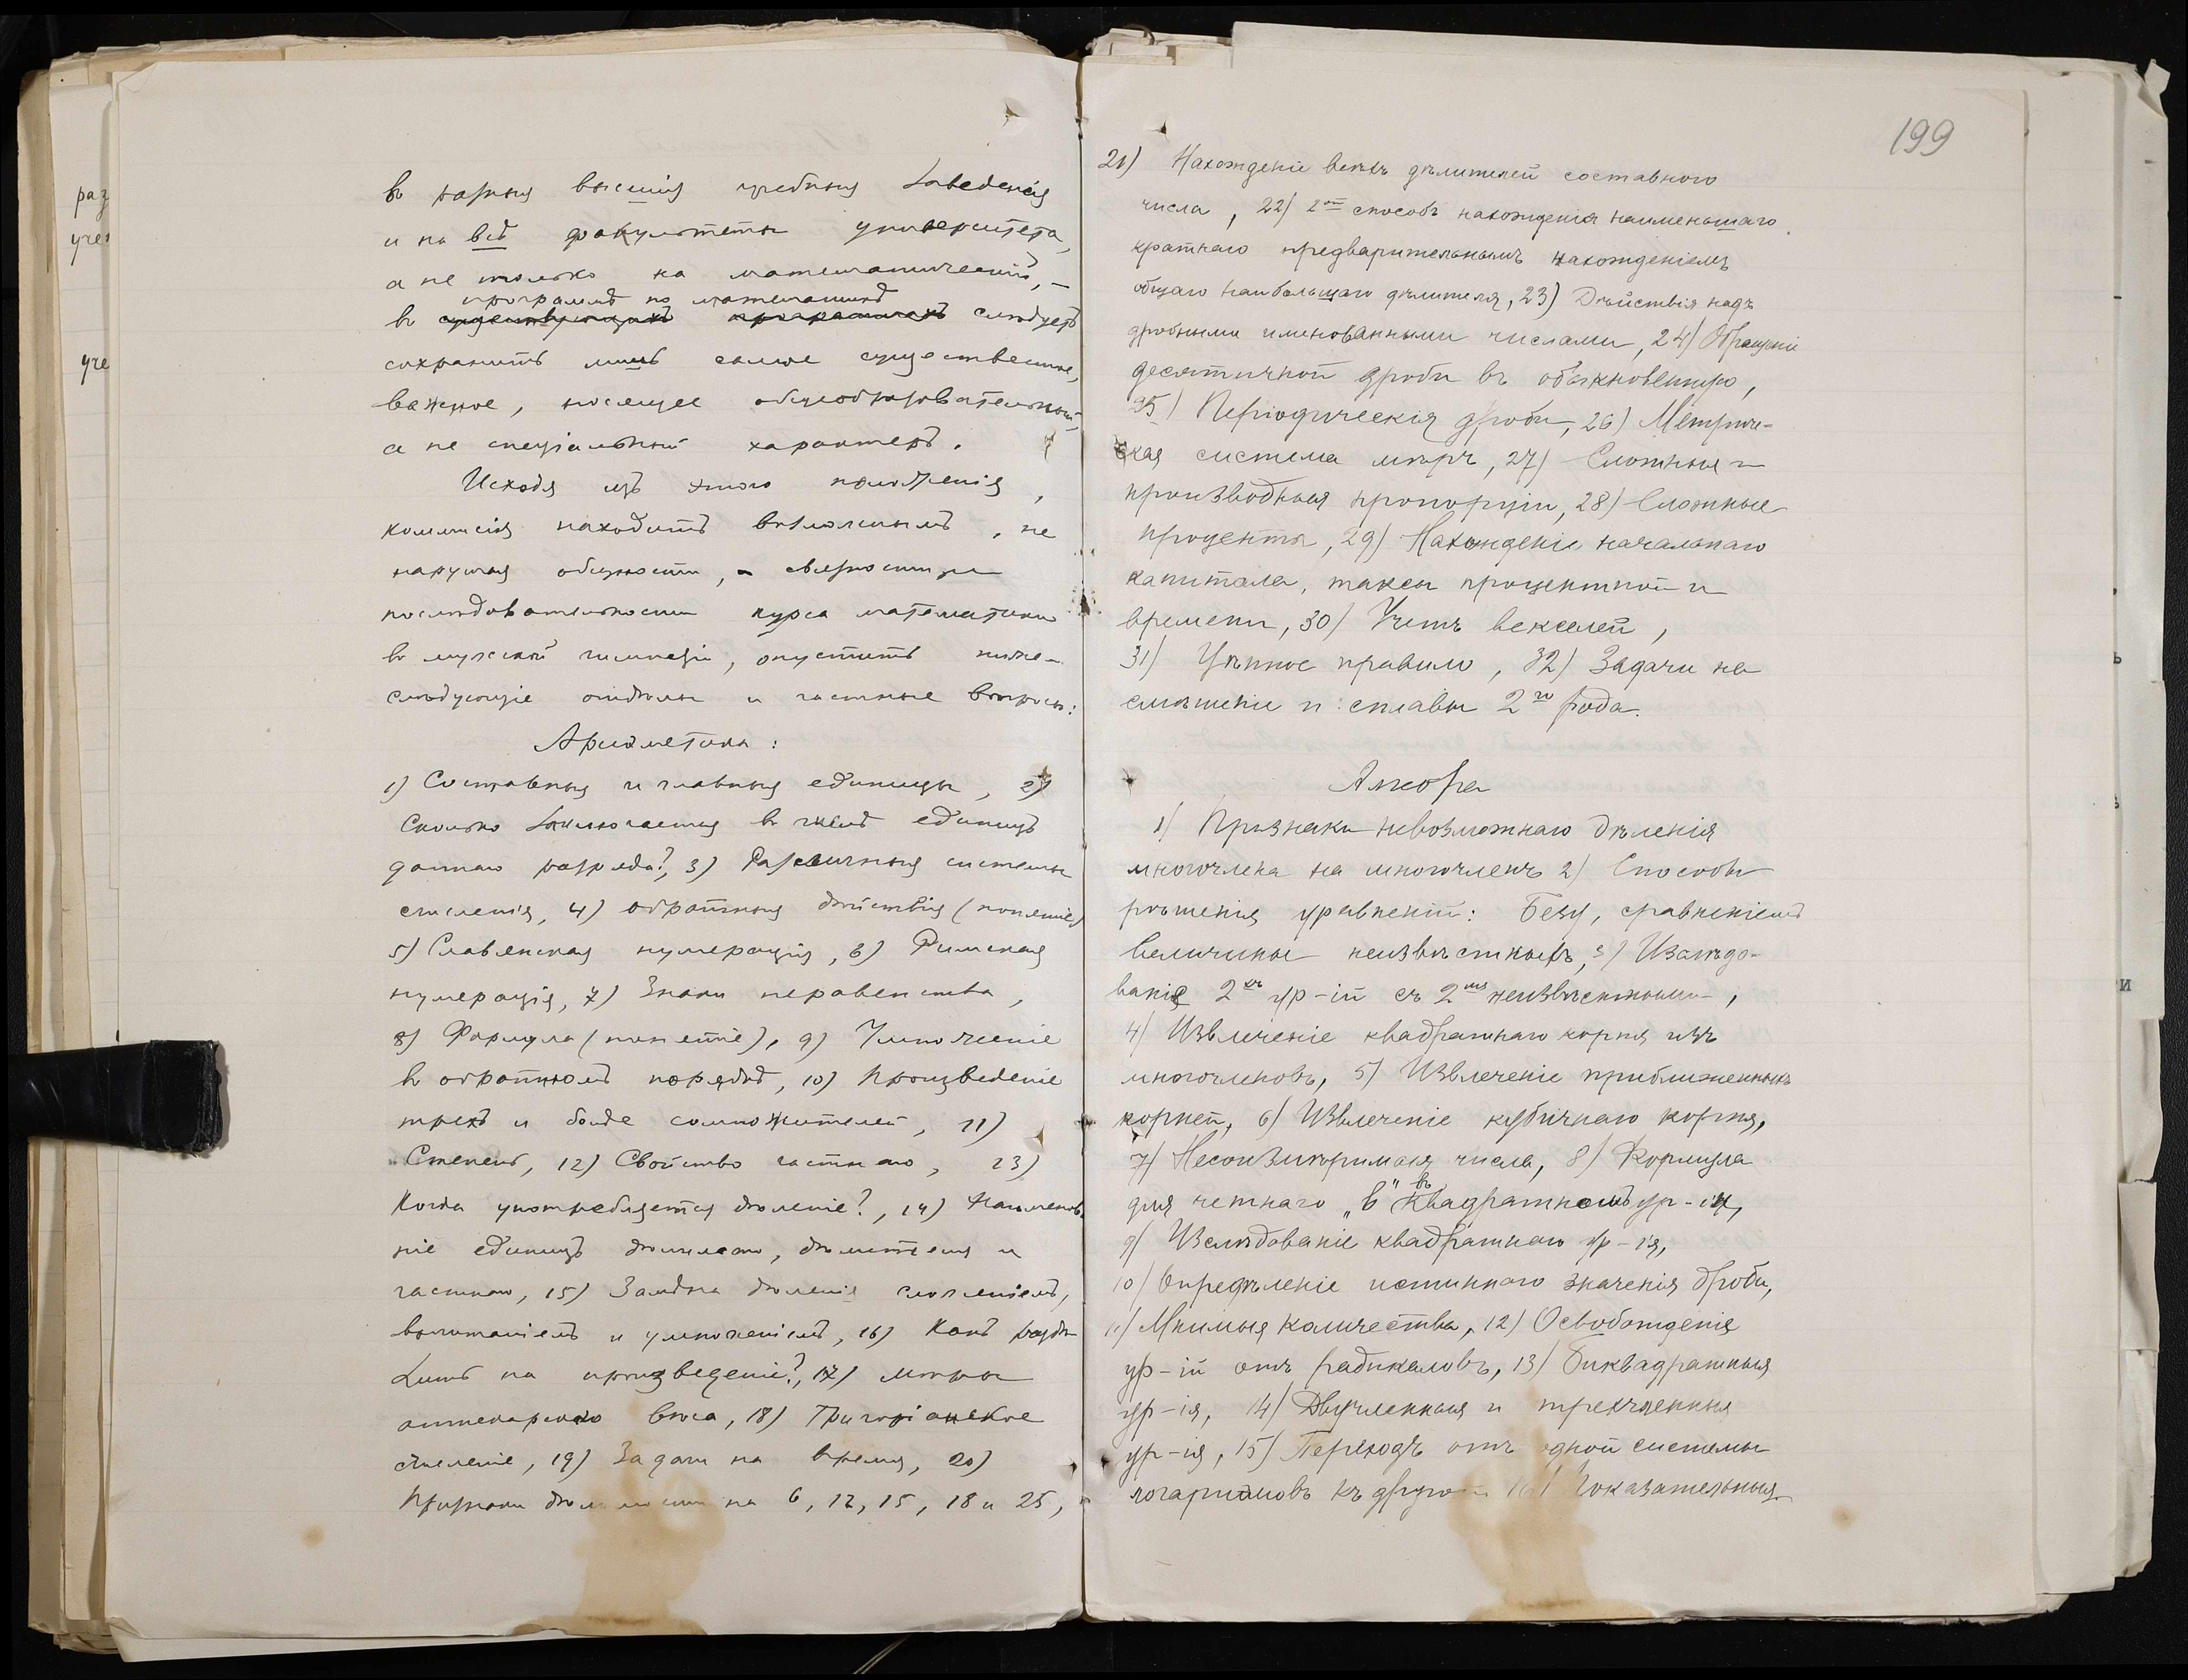 раз
учен
уче
въ разныя высшія учебныя заведенія
и на всѣ факультеты университета,
а не только на математическій, —
программѣ по математикѣ
въ существующихъ программахъ слѣдуетъ
сохранить лишь самое существенное,
важное, носящее общеобразовательный,
а не спеціальный характеръ.
Исходя изъ этого положенія,
коммисія находитъ возможнымъ, не
нарушая общности, связности и
послѣдовательности курса математики
въ мужской гимназіи, опустить ниже-
слѣдующіе отдѣлы и частные вопросы:
Ариѳметика:
1) Составныя и главныя единицы, 2)
Сколько заключается въ числѣ единицъ
даннаго разряда?, 3) Различныя системы
счисленія, 4) Обратныя дѣйствія (понятіе)
5) Славянская нумерація, 6) Римская
нумерація, 7) Знаки неравенства,
8) Формула (понятіе), 9) Умноженіе
въ обратномъ порядкѣ, 10) Произведеніе
трехъ и болѣе сомножителей, 11)
Степень, 12) Свойство частнаго, 13)
Когда употребляется дѣленіе?, 14) Наименова
ніе единицъ дѣлимаго, дѣлителя и
частнаго, 15) Замѣна дѣленія сложеніемъ,
вычитаніемъ и умноженіемъ, 16) Какъ раздѣ
лить на произведеніе?, 17) Мѣры
аптекарскаго вѣса, 18) Григоріанское
счисленіе, 19) Задачи на время, 20)
Признаки дѣлимости на 6, 12, 15, 18 и 25,
199
21) Нахожденіе всѣхъ дѣлителей составного
числа, 22) 2ой способъ нахожденія наименьшаго
кратнаго предварительнымъ нахожденіемъ
общаго наибольшаго дѣлителя, 23) Дѣйствія надъ
дробными именованными числами, 24) Обращеніе
десятичной дроби въ обыкновенную,
25) Періодическія дроби, 26) Метриче-
ская система мѣръ, 27) Сложныя и
производныя пропорціи, 28) Сложные
проценты, 29) Нахожденіе начальнаго
капитала, таксы процентной и
времени, 30) Учетъ векселей,
31) Цѣпное правило, 32) Задачи на
смѣшеніе и сплавы 2го рода.
Алгебра
1) Признаки невозможнаго дѣленія
многочлена на многочленъ 2) Способы
рѣшенія уравненій: Безу, сравненіемъ
величины неизвѣстныхъ, 3) Изслѣдо-
ваніе 2хъ ур-ій съ 2мя неизвѣстными,
4) Извлеченіе квадратнаго корня изъ
многочленовъ, 5) Извлеченіе приближенныхъ
корней, 6) Извлеченіе кубичнаго корня,
7) Несоизмѣримыя числа, 8) Формула
для четнаго „в" въ квадратномъ ур-іи,
9) Изслѣдованіе квадратнаго ур-ія,
10) Опредѣленіе истиннаго значенія дроби,
11) Мнимыя количества, 12) Освобожденія
ур-ій отъ радикаловъ, 13) Биквадратныя
ур-ія, 14) Двучленныя и трехчленныя
ур-ія, 15) Переходъ отъ одной системы
логариѳмовъ къ другой 16) Показательныя